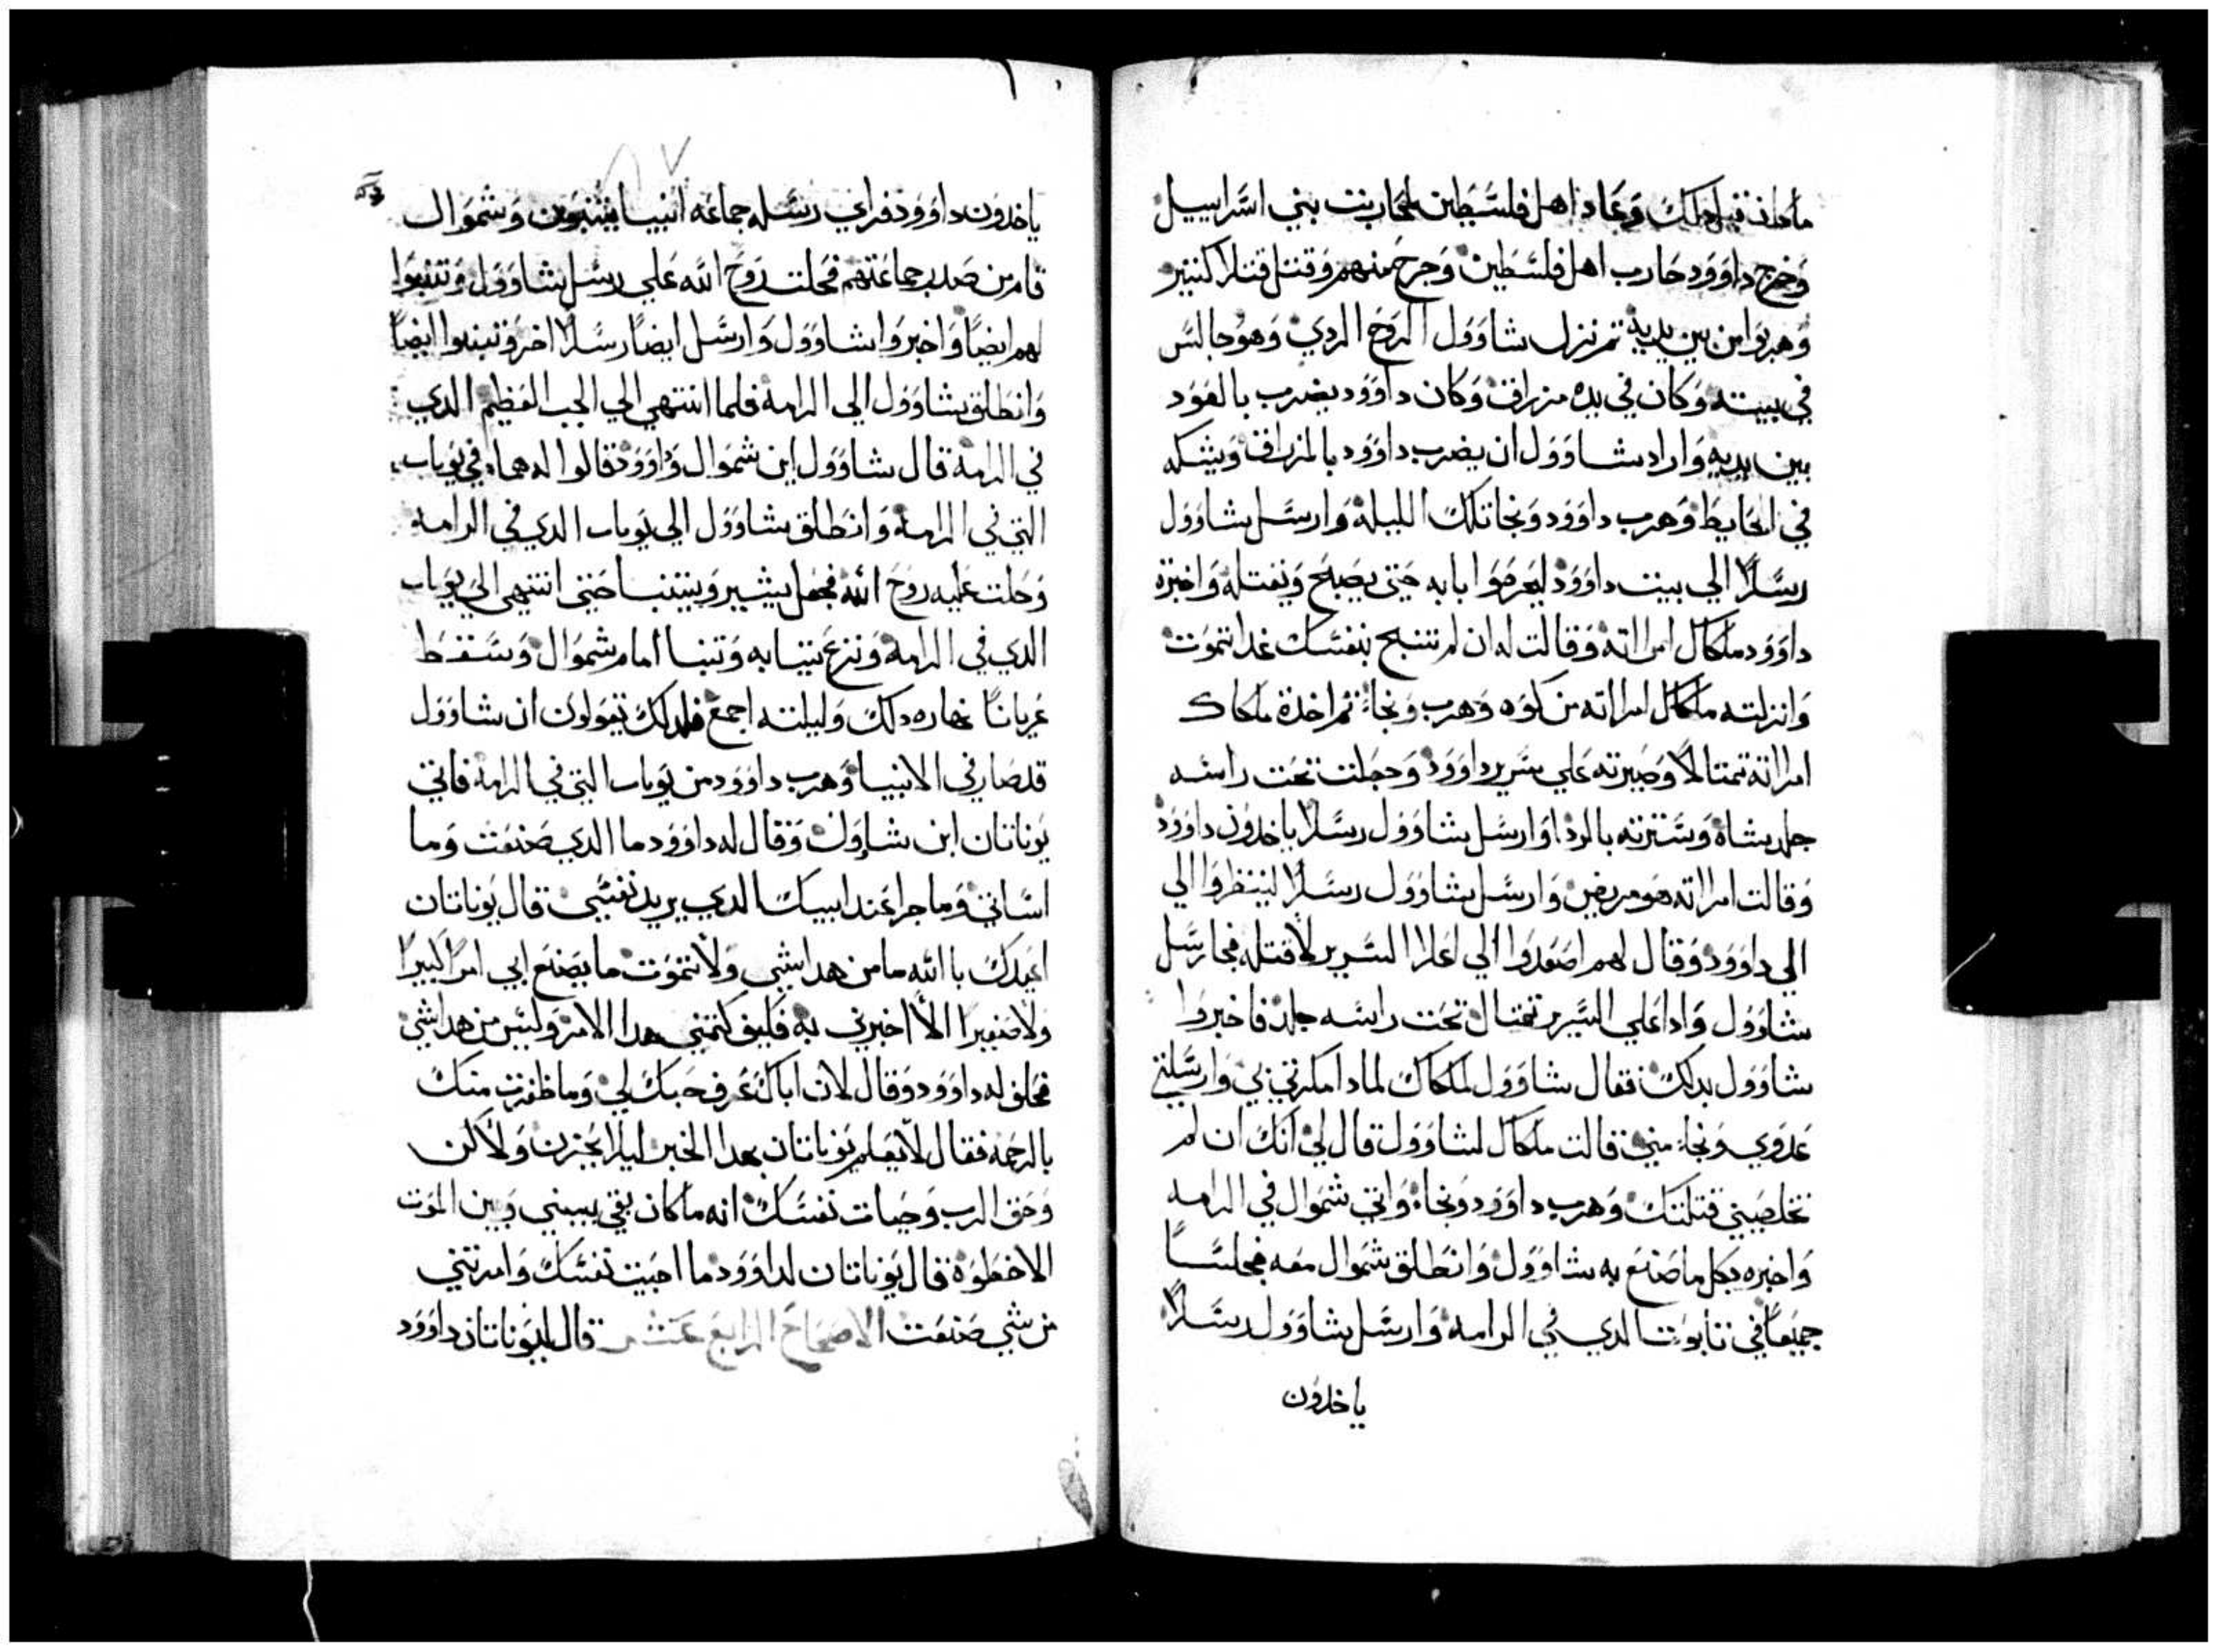 ماكان قبل دلك وعاد اهل فلسطين لمحاربت بني اسراييل
وخرج داوود حارب اهل فلسطين وجرح منهم وقتل قتلا كتير
وهربوا من بين يديه تم نزل شاوول الروح الردي وهو جالس
في بيته وكان في يده مزراق وكان داوود يضرب بالعود
بين يديه واراد شاوول ان يضرب داوود بالمزراق ويشكه
في الحايط وهرب داوود ونجا تلك الليلة وارسل شاوول
رسلا الي بيت داوود ليعرضوا بابه حتي يصبح ويقتله واخبرة
داوود ملكال امراته وقالت له ان لم تنج بنفسك غدا تموت
وانزلته ملكال امراته من كوه وهرب ونجا تم اخدة ملكال
امراته تمتالا وصيرته علي سرير داوود وجعلت تحت راسه
جلد شاة وسترته بالردا وارسل شاوول رسلا ياخدون داوود
وقالت امراته هو مريض وارسل شاوول رسلا لينظروا الي
الي داوود وقال لهم اصعدوا الي اعلا السرير لاقتله فجا رسل
شاوول وادا علي السرير تمتال تحت راسه جلد فاخبروا
شاوول بدلك فقال شاوول لملكال لمادا مكرتي بي وارسلتي
عدوي ونجا مني قالت ملكال لشاوول قال لي انك ان لم
تخلصيني قتلتك وهرب داوود ونجا واتي شموال في الرامه
واخبره بكل ما صنع به شاوول وانطلق شموال معه فجلسا
جميعا في تابوت الدي في الرامه وارسل شاوول رسلا
ياخدون
ياخدون داوود فراي رسله جماعه انبيا يتنبون وشموال
قام من صدر جماعتهم فحلت روح الله علي رسل شاوول وتنبوا
لهم ايضا واخبروا شاوول وارسل ايضا رسلا اخر وتنبوا ايضا
وانطلق شاوول الي الرامة فلما انتهي الي الجب العظيم الدي
في الرامة قال شاوول اين شموال وداوود قالوا له هما في يوياب
التي في الرامة وانطلق شاوول الي يوياب الدي في الرامه
وحلت عليه روح الله فجعل يسير ويتنبا حتي انتهي الي يوياب
الدي في الرامة ونزع تيابه وتنبا امام شموال وسقط
عريانا نهاره دلك وليلته اجمع فلدلك يقولون ان شاوول
قد صار في الانبيا وهرب داوود من يوياب التي في الرامة فاتي
يوناتان ابن شاول وقال له داوود ما الدي صنعت وما
اساتي وما جرا عند ابيك الدي يريد نفسي قال يوناتان
اعيدك بالله ما من هدا شي ولا تموت ما يصنع ابي امرا كبيرا
ولا صغيرا الا اخبرني به فكيف كتمني هدا الامر وليس من هدا شي
فحلف له داوود وقال لان اباك عرف حبك لي وما ظفرت منك
بالرحمة فقال لا يعلم يوناتان بهدا الخبر ليلا يحزن ولاكن
وحق الرب وحيات نفسك انه ما كان بقي بيني وبين الموت
الا خطوة قال يوناتان لداوود ما احبت نفسك وامرتني
من شي صنعت الاصحاح الرابع عشر قال ليوناتان داوود